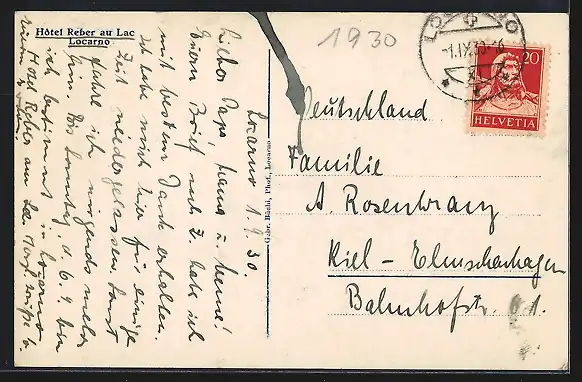 Hôtel Reber au Lac
Locarno
1930
LOCARNO
-1.IX.30
20
HELVETIA
Gebr. Bächi, Phot., Locarno
Deutschland
Familie
A. Rosenkranz
Kiel - Elmschenhagen
Bahnhofstr. 61.
Locarno 1.9.30.
Lieber Papa, Mama u.
Euern Brief nach Z. habe ich
mit bestem Dank erhalten.
Ich habe mich hier für einige
Zeit niedergelassen. Sonst
fahre ich nirgends mehr
hin. Bis Sonntag d. 6.9. bin
ich bestimmt in Locarno
Hotel Reber am See